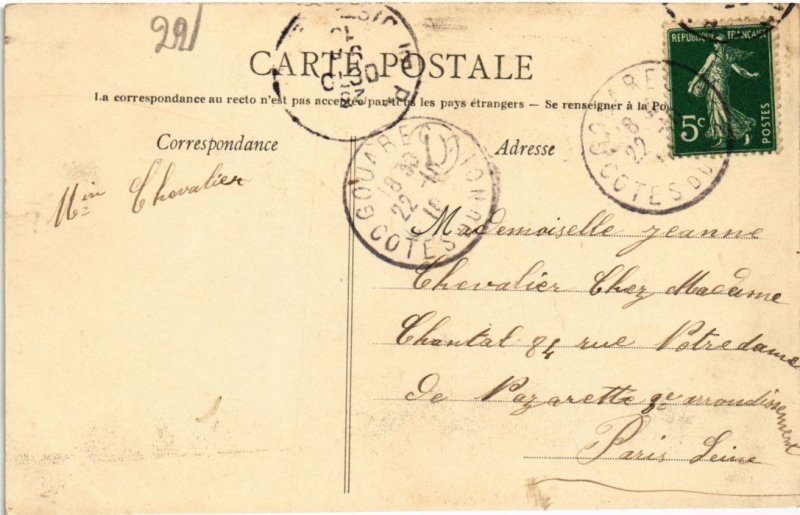 29/
CARTE POSTALE
La correspondance au recto n'est pas acceptée par tous les pays étrangers — Se renseigner à la Po
Correspondance
Adresse
REPUBLIQUE FRANÇAISE
5c
POSTES
GOUAREC
18 30
22 -10
COTES DU NORD
GOUAREC
18
22
COTES DU
Chevalier
Mademoiselle Jeanne
Chevalier Chez Madame
Chantal 84 rue Notredame
de Nazarette 3e arrondissement
Paris Seine